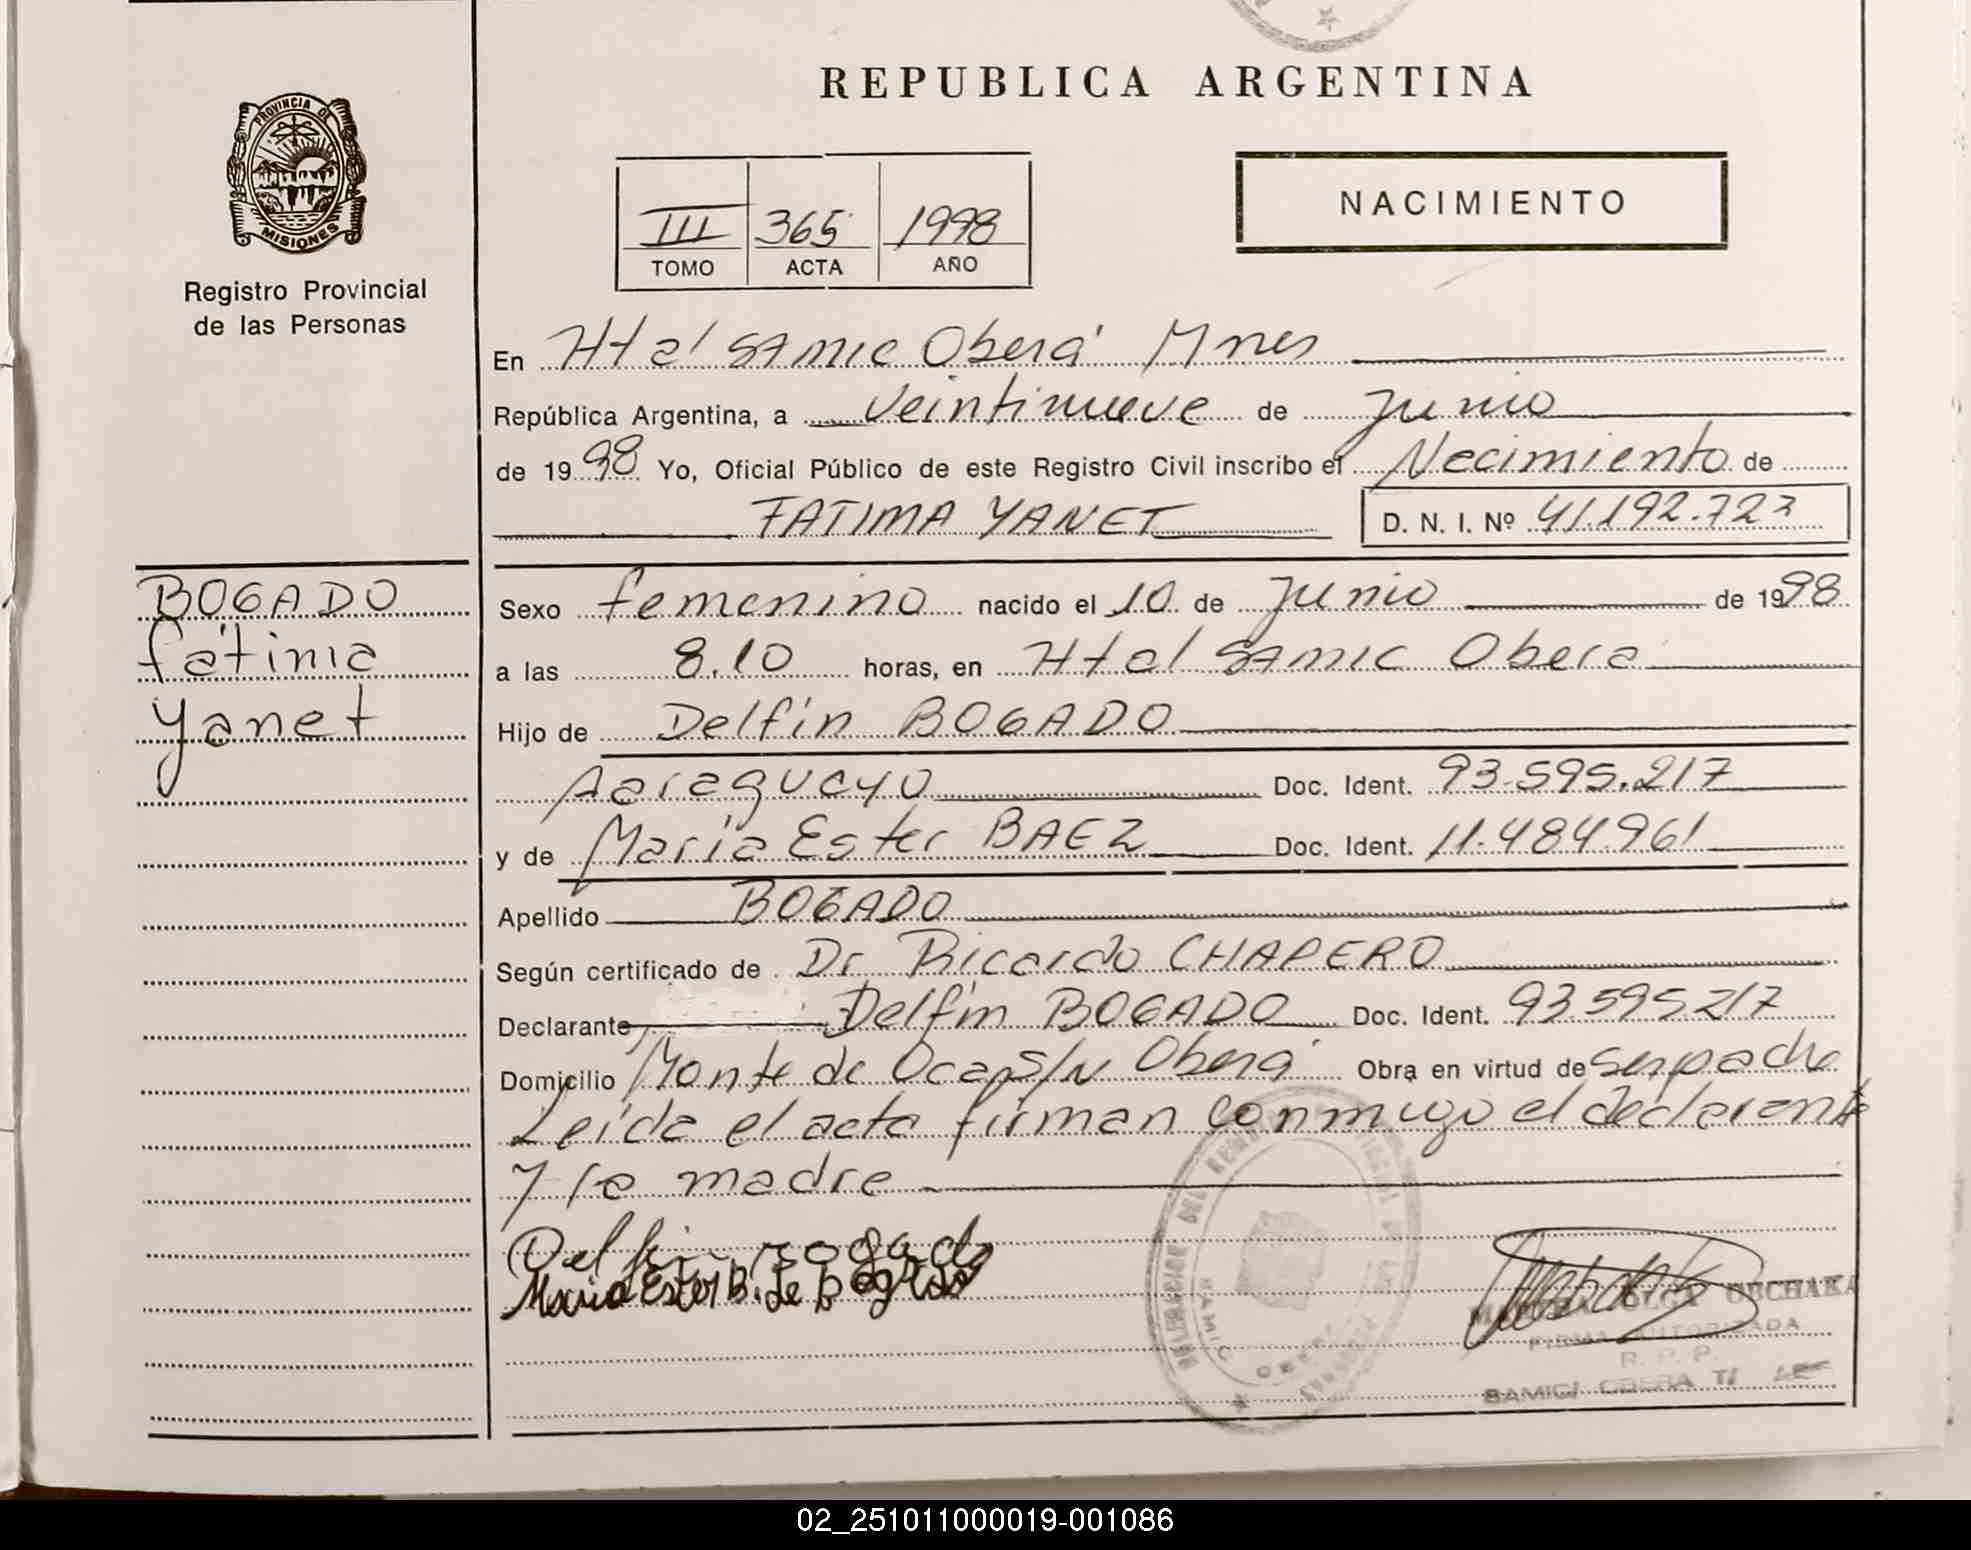 REPUBLICA ARGENTINA
PROVINCIA DE
MISIONES
Registro Provincial
de las Personas
III 365 1998
TOMO ACTA AÑO
NACIMIENTO
En Htal SAMIC Oberá Mnes
República Argentina, a veintinueve de Junio
de 1998 Yo, Oficial Público de este Registro Civil inscribo el Nacimiento de
FATIMA YANET D. N. I. Nº 41.192.723
BOGADO
Fátima
Yanet
Sexo femenino nacido el 10 de Junio de 1998
a las 8.10 horas, en Htal SAMIC Oberá
Hijo de Delfín BOGADO
Paraguayo Doc. Ident. 93.595.217
y de María Ester BAEZ Doc. Ident. 11.484.961
Apellido BOGADO
Según certificado de Dr Ricardo CHAPERO
Declarante Delfín BOGADO Doc. Ident. 93.595217
Domicilio Monte de Oca s/N Oberá Obra en virtud de ser padre
Leída el acta firman conmigo el declarante
y la madre
Delfin Bogado
Maria Ester B. de Bogado
OLGA
FIRMA AUTORIZADA
R. P. P.
OBERA
02_251011000019-001086